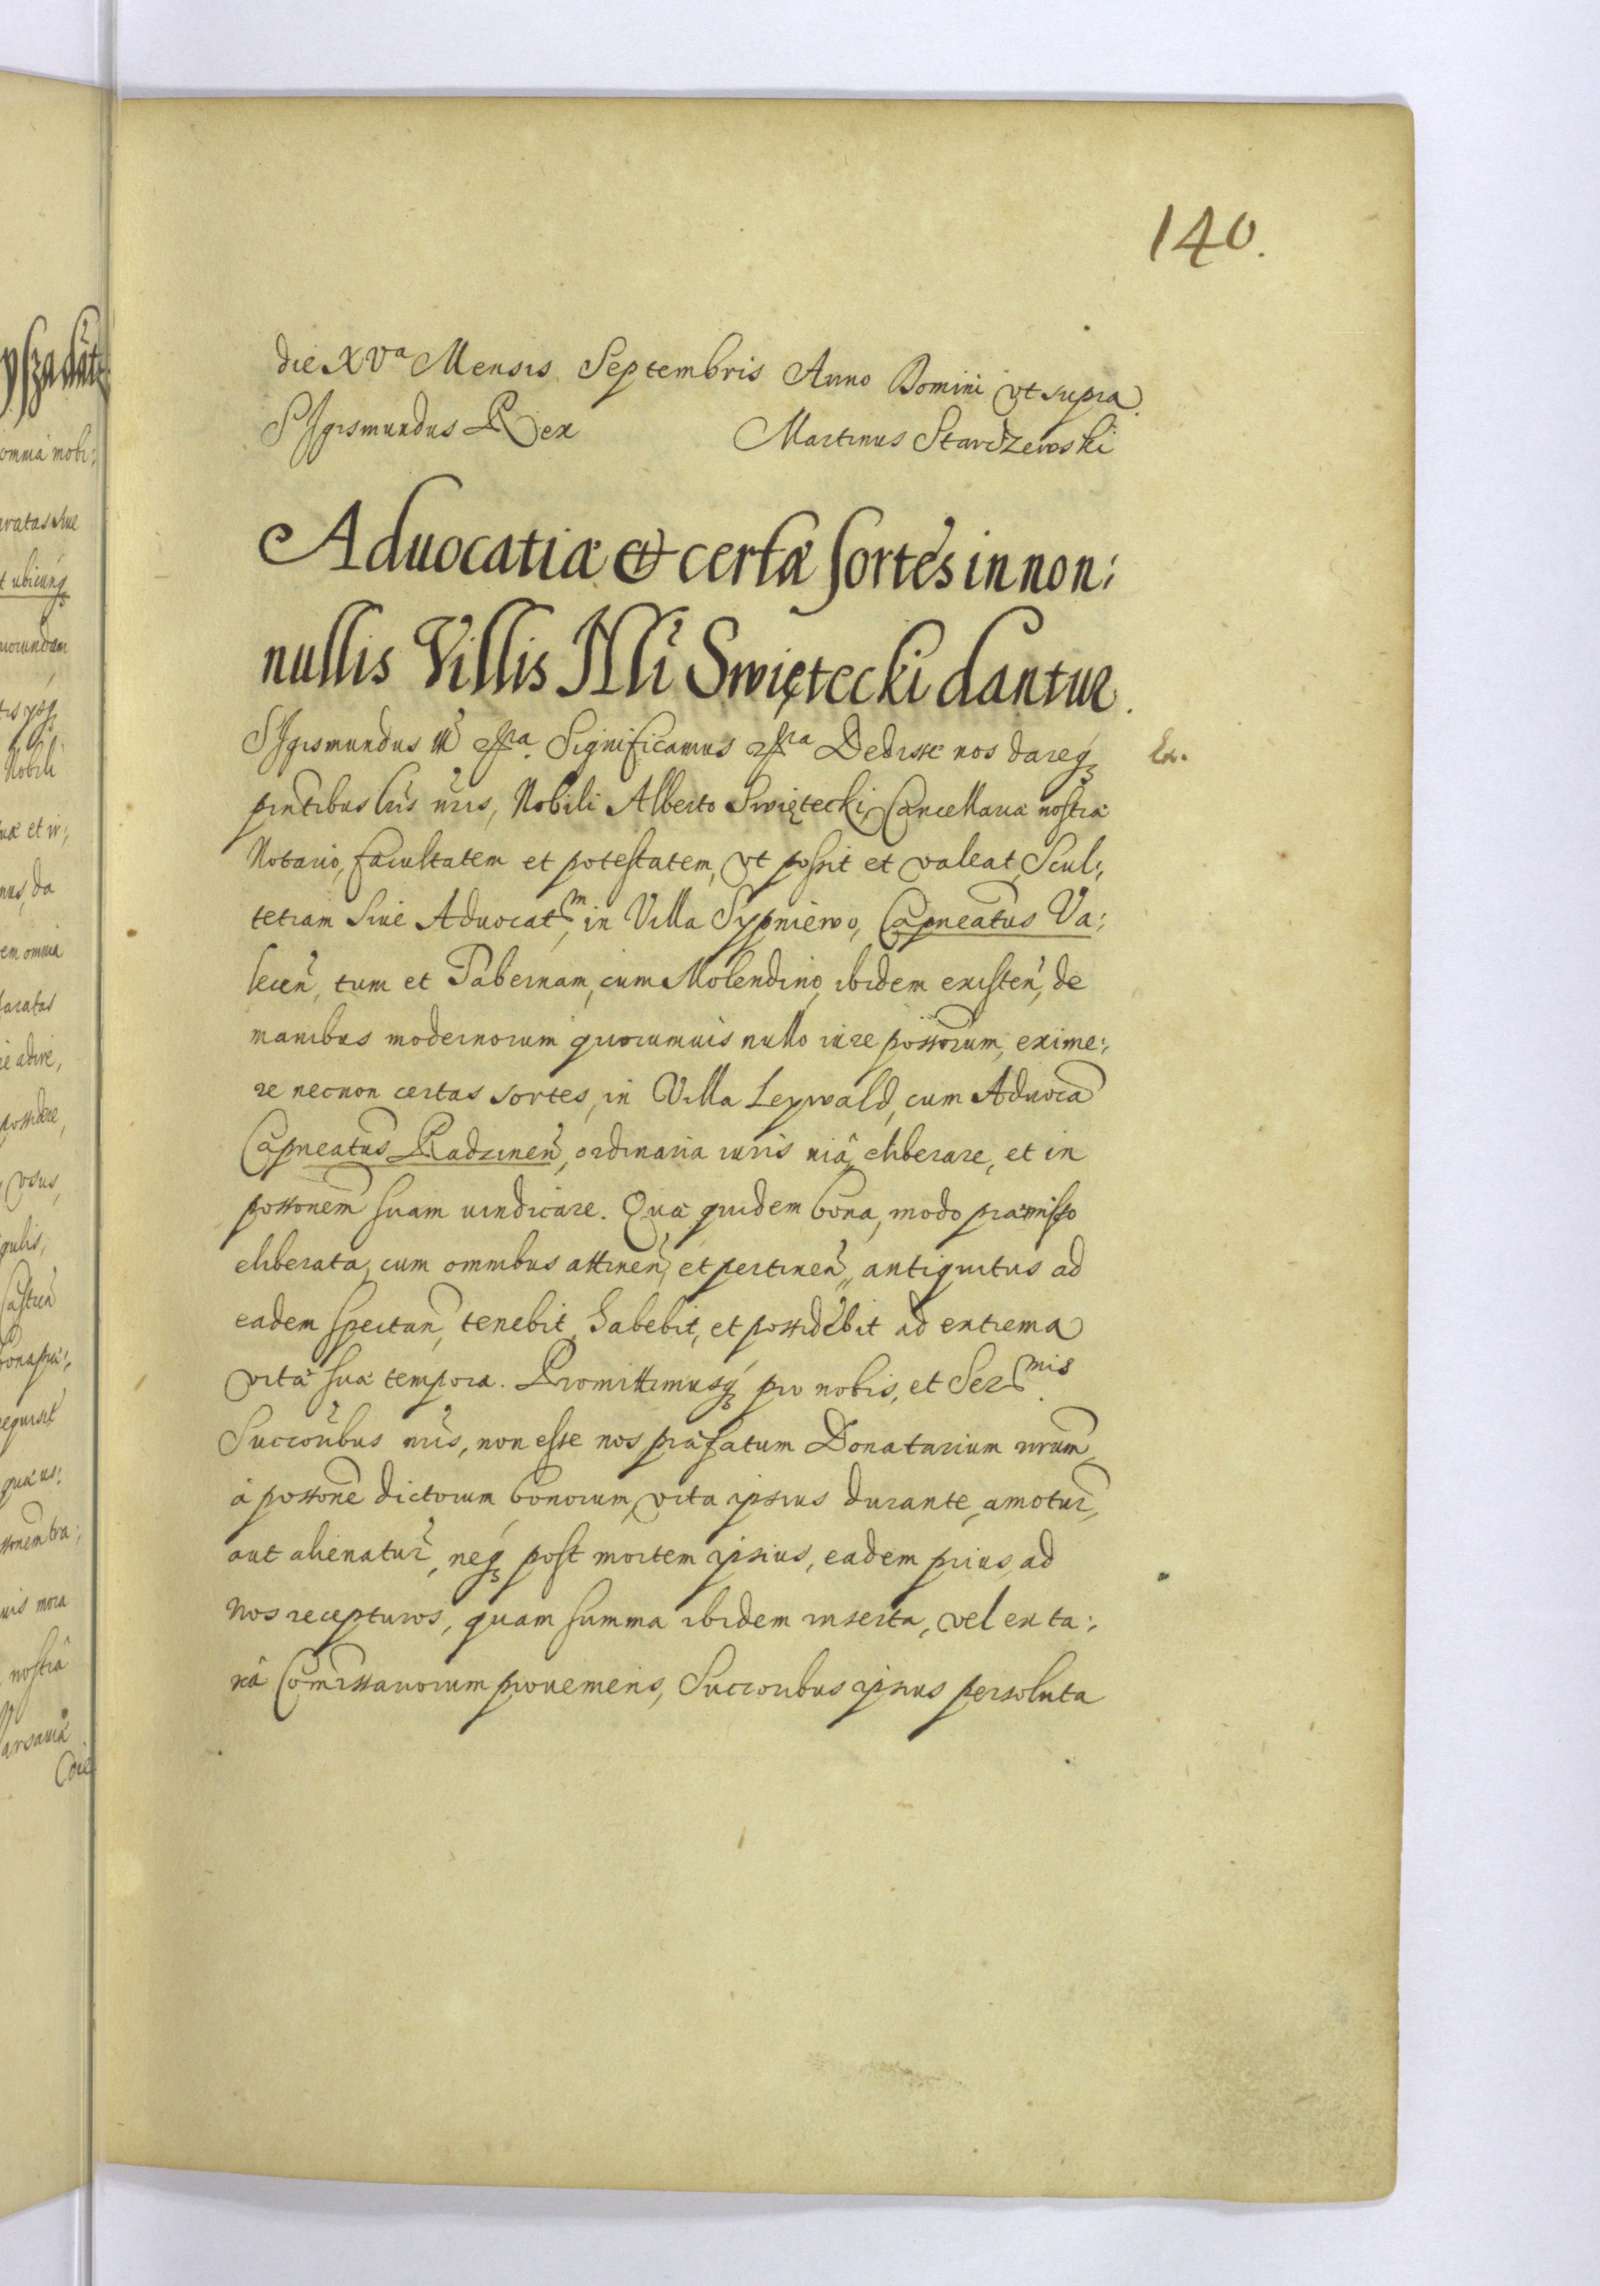 140.
die XVa Mensis Septembris Anno Domini vt supra.
Sigismundus Rex Martinus Starczewski
Aduocatiæ & certæ sortes in non:
nullis Villis Nli Swiętecki dantur.
Sigismundus Significamus Dedisse nos dareq; Ex.
pntibus lris nris, Nobili Alberto Swiętecki, Cancellariæ nostræ
Notario, facultatem et potestatem, vt possit et valeat, Scul:
tetiam siue Aduocatm, in Villa Sypniewo, Capneatus Va:
lecen, tum et Tabernam, cum Molendino, ibidem existen, de
manibus modernorum quorumuis nullo iure possorum, exime:
re necnon certas sortes, in Villa Leywald, cum Aduoca
Capneatus Radzinen, ordinaria iuris uiâ, eliberare, et in
possonem suam uindicare. Quæ quidem bona, modo præmisso
eliberata, cum omnibus attinen, et pertinen, antiquitus ad
eadem spectan, tenebit, habebit, et possidebit ad extrema
vitæ suæ tempora. Promittimusq; pro nobis, et Sermis
Succoribus nris, non esse nos præfatum Donatarium nrum,
à possone dictorum bonorum, vita ipsius durante, amotur,
aut alienatur, neq; post mortem ipsius, eadem prius, ad
nos recepturos, quam summa ibidem inserta, vel ex ta:
xâ Comissariorum proueniens, Succoribus ipsius persoluta